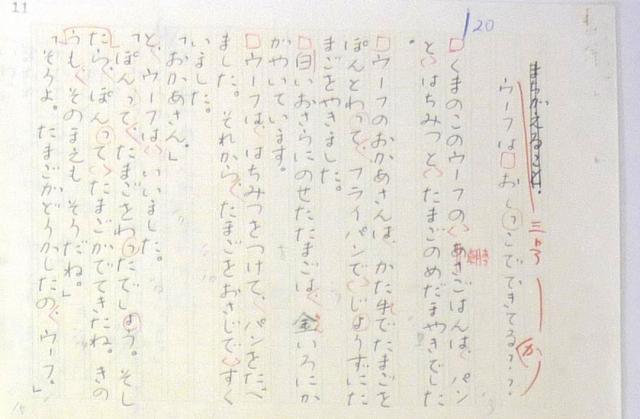 11
1/20
まちがえるな
ウーフは□おしっこでできてる??
三から
(か)
□くまのこのウーフの、あさごはんは、パン
朝
と、はちみつと、たまごのめだまやきでした
。
□ウーフのおかあさんは、かた手でたまごを
ぽんとわって、フライパンで、じょうずにた
まごをやきました。
□白いおさらにのせたたまごは、金いろにか
がやいています。
□ウーフは、はちみつをつけて、パンをたべ
ました。それから、たまごをおさじですく
いました。
「おかあさん。」
と、ウーフは、いいました。
「ぽんって、たまごをわったでしょう。そし
たら、ぽんって、たまごがでてきたね。きの
うも、そのまえも そうだね。」
「そうよ。たまごがどうかしたの、ウーフ。」